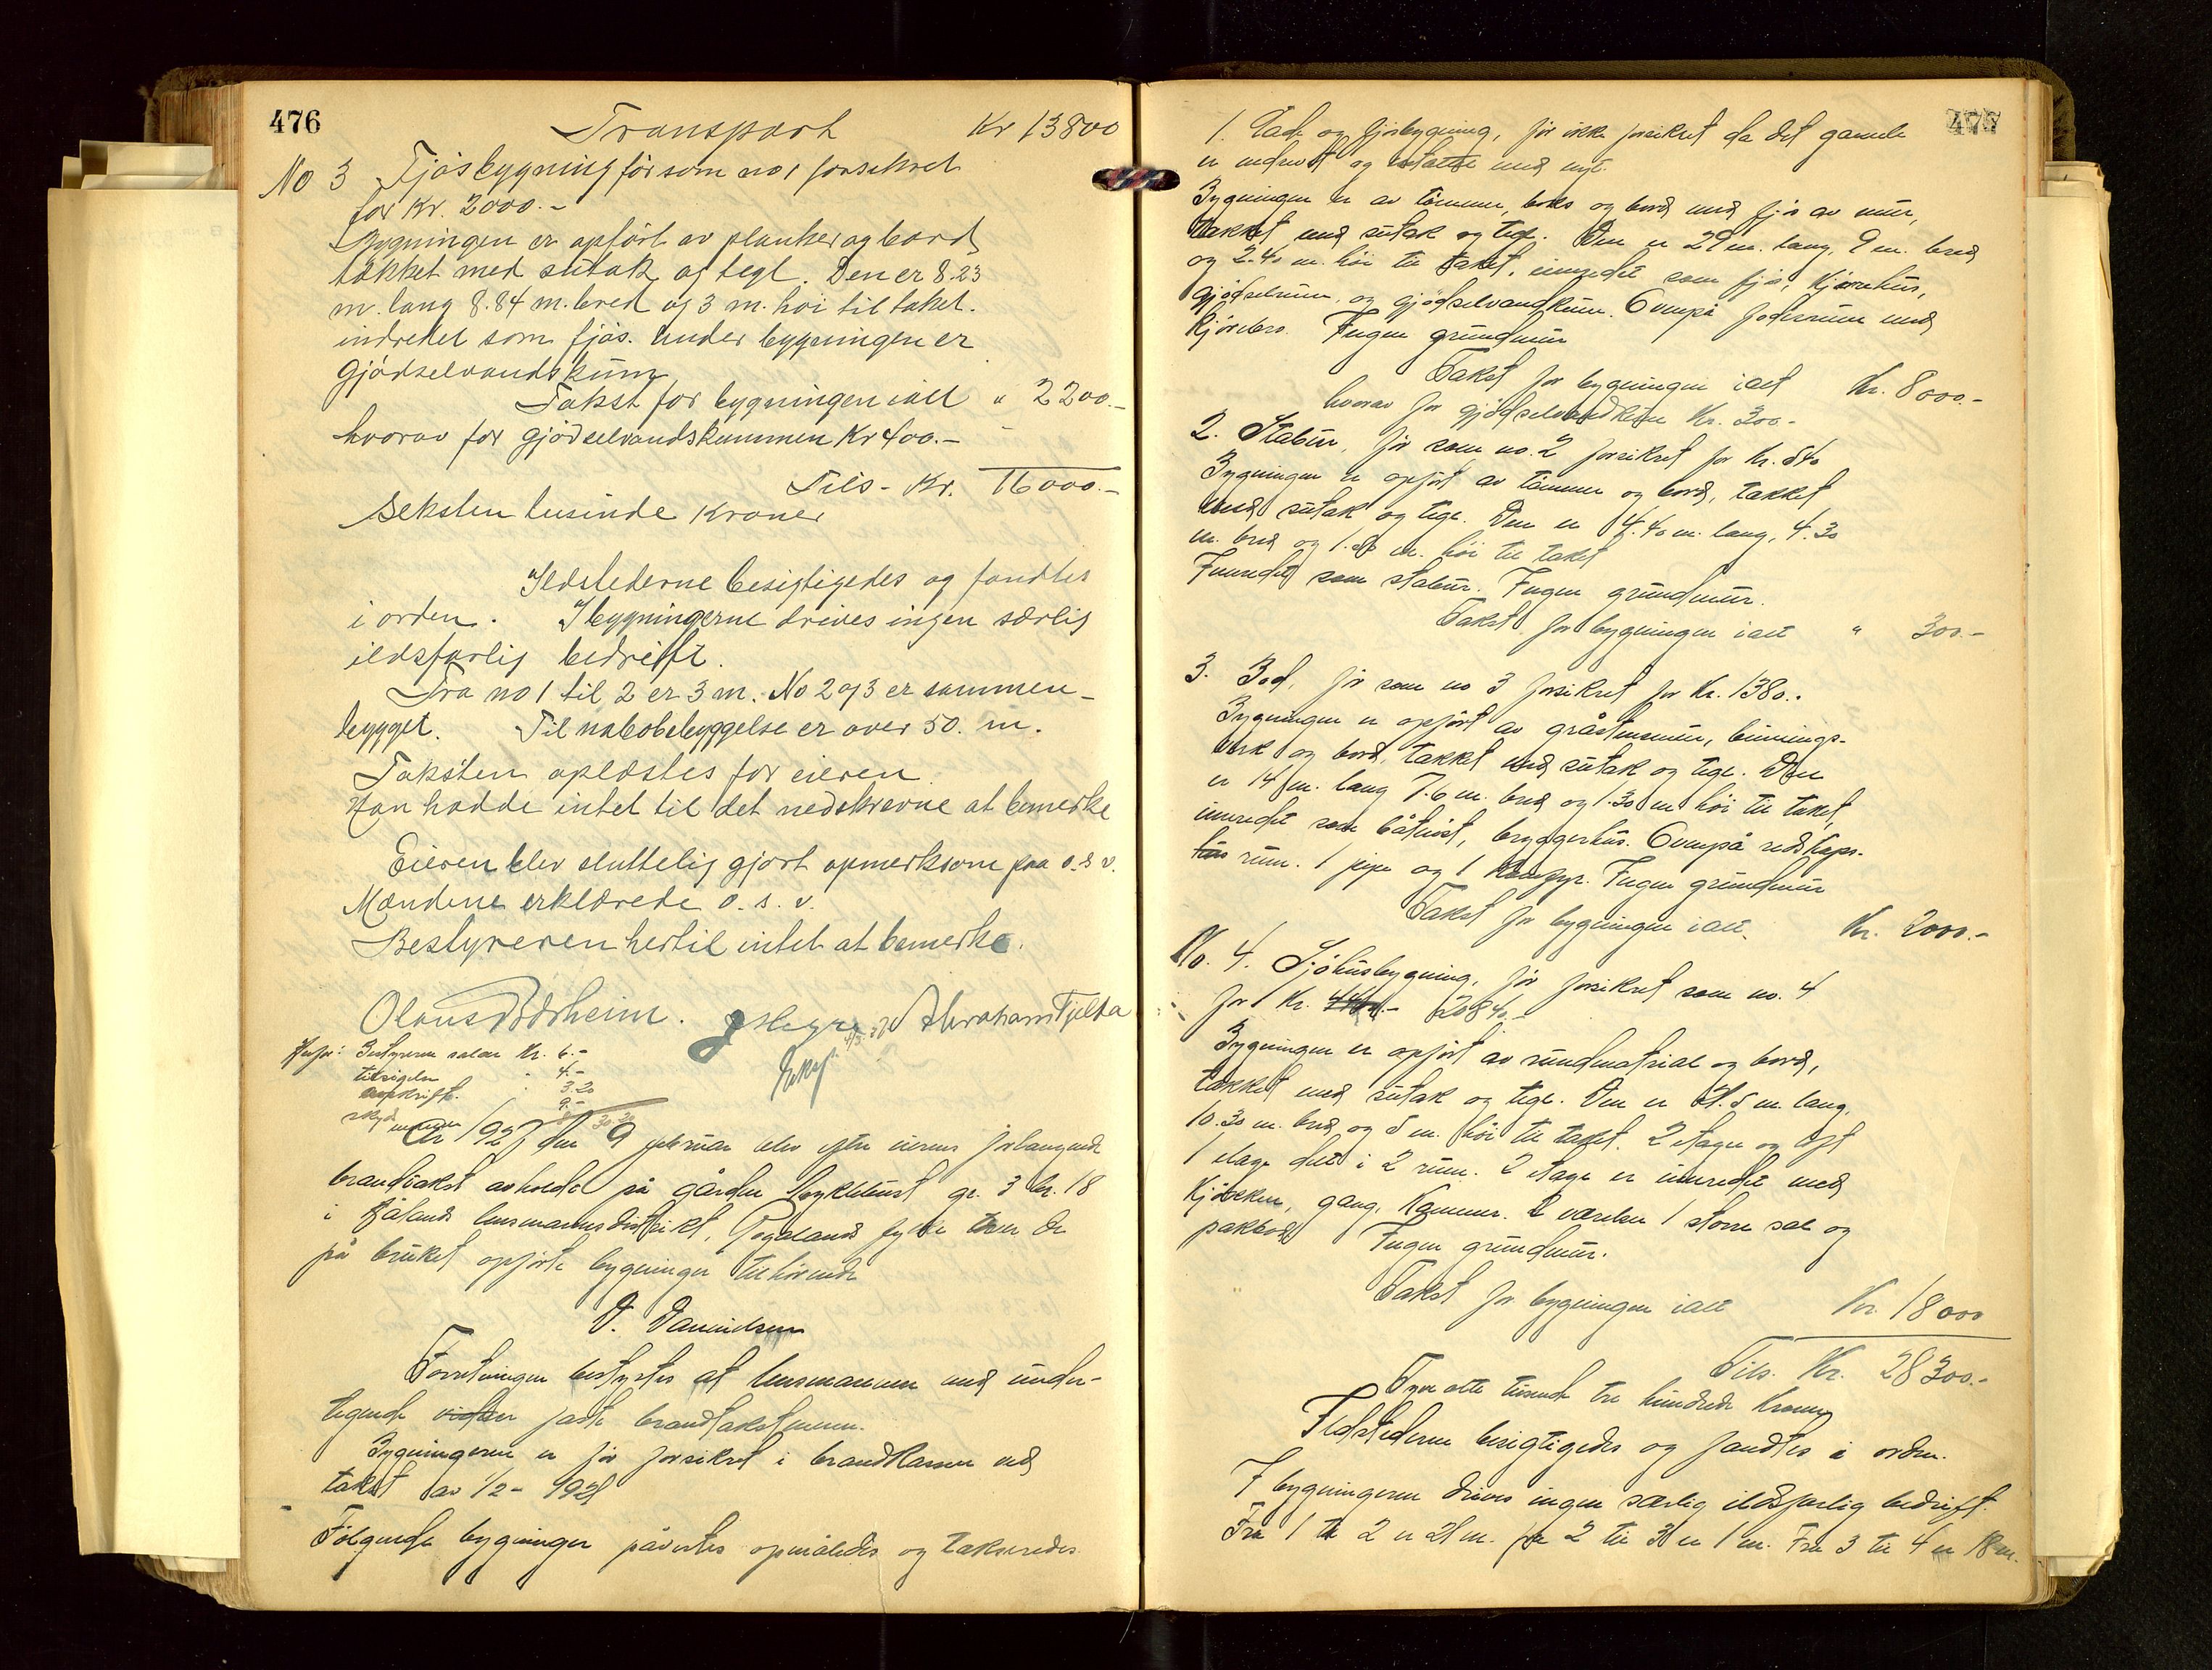 476
Transport Kr 13800
No 3 Fjösbygning för som no 1 forsekret
for Kr. 2000.-
Bygningen er opfört av planker og bord
takket med sutak og tegl. Den er 8.23
m. lang 8.84 m. bred og 3 m. höi til taket.
indredet som fjös. Under bygningen er
gjödselvandskum
Takst for bygningen ialt " 2200.-
hvorav for gjödselvandskummen Kr 400.-
Tils - Kr. 16000.-
Seksten tusinde Kroner
Ildstederne besigtigedes og fandtes
i orden. I bygningerne drives ingen særlig
ildsfarlig bedrift.
Fra no 1 til 2 er 3 m. No 2 og 3 er sammen-
bygget. Til nabobebyggelse er over 50. m.
Taksten oplæstes for eieren.
Han hadde intet til det nedskrevne at bemerke
Eieren blev sluttelig gjort opmerksom paa o.s v.
Mændene erklærede o. s. v.
Bestyreren hertil intet at bemerke.
Olaus Bærheim. Abraham Fjelda
Bestyreren salær Kr. 6.-
tilsigelse " 4.-
avskrift. " 3.20
skyds 9.-
År 1927 den 9 februar blev efter eierens forlangende
brandtakst avholdt på gården Myklebust gr. 3 br. 18
i Håland lensmannsdistrikt, Rogalands fylke over de
på bruket opförte bygninger tilhörende
D. Davidsen
Forretningen bestyrtes af lensmannen med under-
tegnede faste brandtakstmenn.
Bygningerne er för forsikret i brandkassen ved
takst av 1/2 - 1921
Fölgende bygninger påvistes opmåledes og takseredes
477
1. Lade og fjösbygning, för ikke forsikret da det gamle
er nedrevet og erstattet med nyt.
Bygningen er av tömmer, boks og bord med fjös av mur,
takket med sutak og tegl. Den er 29 m. lang, 9 m. bred
og 2.40 m. höi til taket, innredet som fjös, kjörehus,
gjödselrum, og gjödselvandkum. Ovenpå foderrum med
kjörebro. Ingen grundmur
Takst for bygningen ialt Kr. 8000.-
hvorav for gjödselvandkum Kr. 300.-
2. Stabur, för som no. 2 forsikret for Kr. 540
Bygningen er opfört av tömmer og bord, takket
med sutak og tegl. Den er 4.40 m. lang, 4.30
m. bred og 1.80 m. höi til taket
Innredet som stabur. Ingen grundmur.
Takst for bygningen ialt " 300.-
3. Bod, för som no 3 forsikret for Kr. 1380..
Bygningen er opfört av gråstensmur, binnings-
verk og bord, takket med sutak og tegl. Den
er 14 m. lang 7.6 m. bred og 1.30 m höi til taket,
innredet som båtnöst, bryggerhus. Ovenpå redskaps-
rum. 1 pipe og 1 komfyr. Ingen grundmur
Takst for bygningen ialt. Kr. 2000.-
No. 4. Sjöhusbygning, för forsikret som no. 4
for Kr. 2080.-
Bygningen er opfört av rundmaterial og bord,
takket med sutak og tegl. Den er m. lang,
10.30 m. bred og 5 m. höi til taket. 2 etager og loft
1 etage delt i 2 rum. 2 etage er innredet med
kjökken, gang, kammer. 2 værelser 1 stor sal og
pakbod Ingen grundmur.
Takst for bygningen ialt Kr. 18000
Tils. Kr. 28300.-
Tyve otte tusinde tre hundrede Kroner
Ildstederne besigtigedes og fandtes i orden.
I bygningerne drives ingen særlig ildsfarlig bedrift.
Fra 1 til 2 er 21 m. fra 2 til 3 er 1 m. Fra 3 til 4 er 18 m.